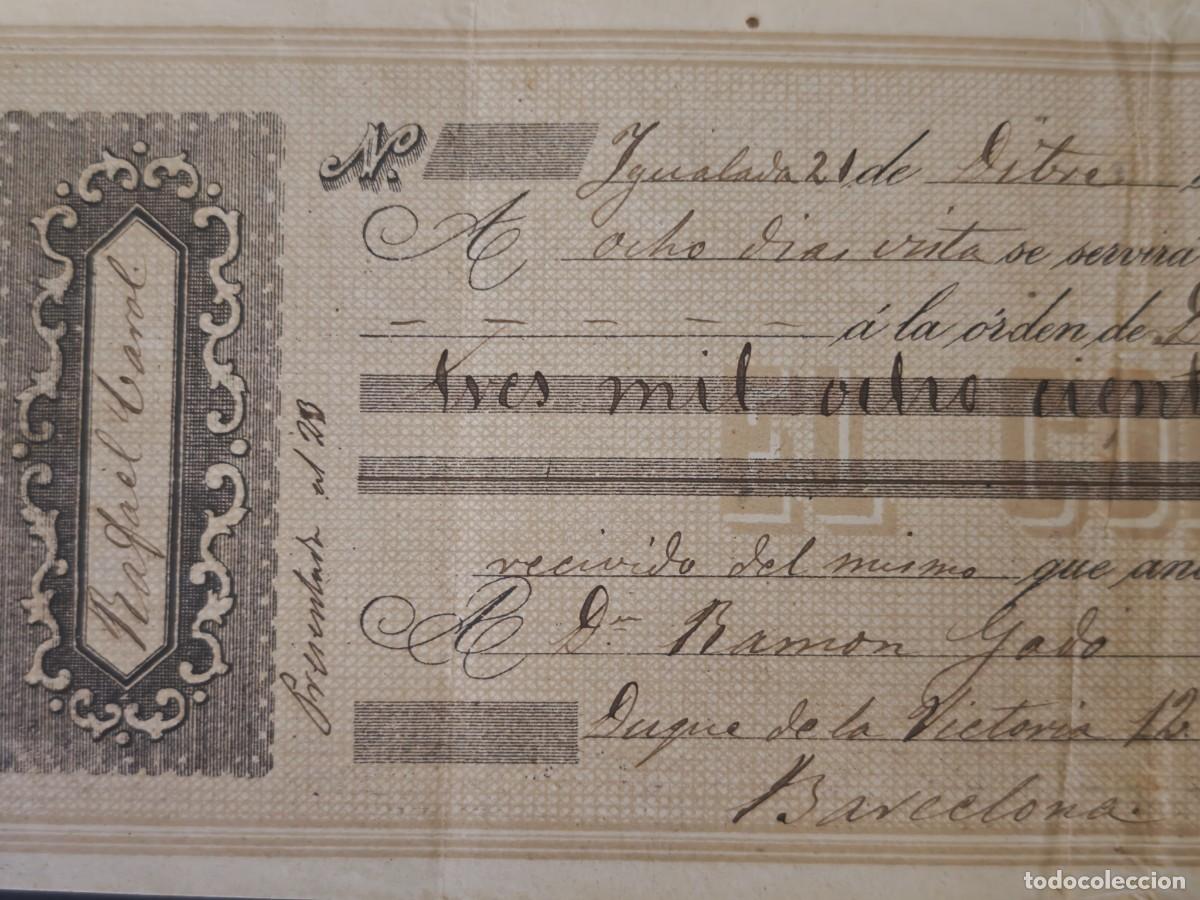 Nº Igualada 21 de Ditre
A ocho dias vista se servirá
á la órden de
tres mil ocho cient
EL CO
recivido del mismo que ano
A Dn Ramon Gado
Duque de la Victoria 12
Barcelona
Rafael Carol.
Presentada el 23
todocoleccion